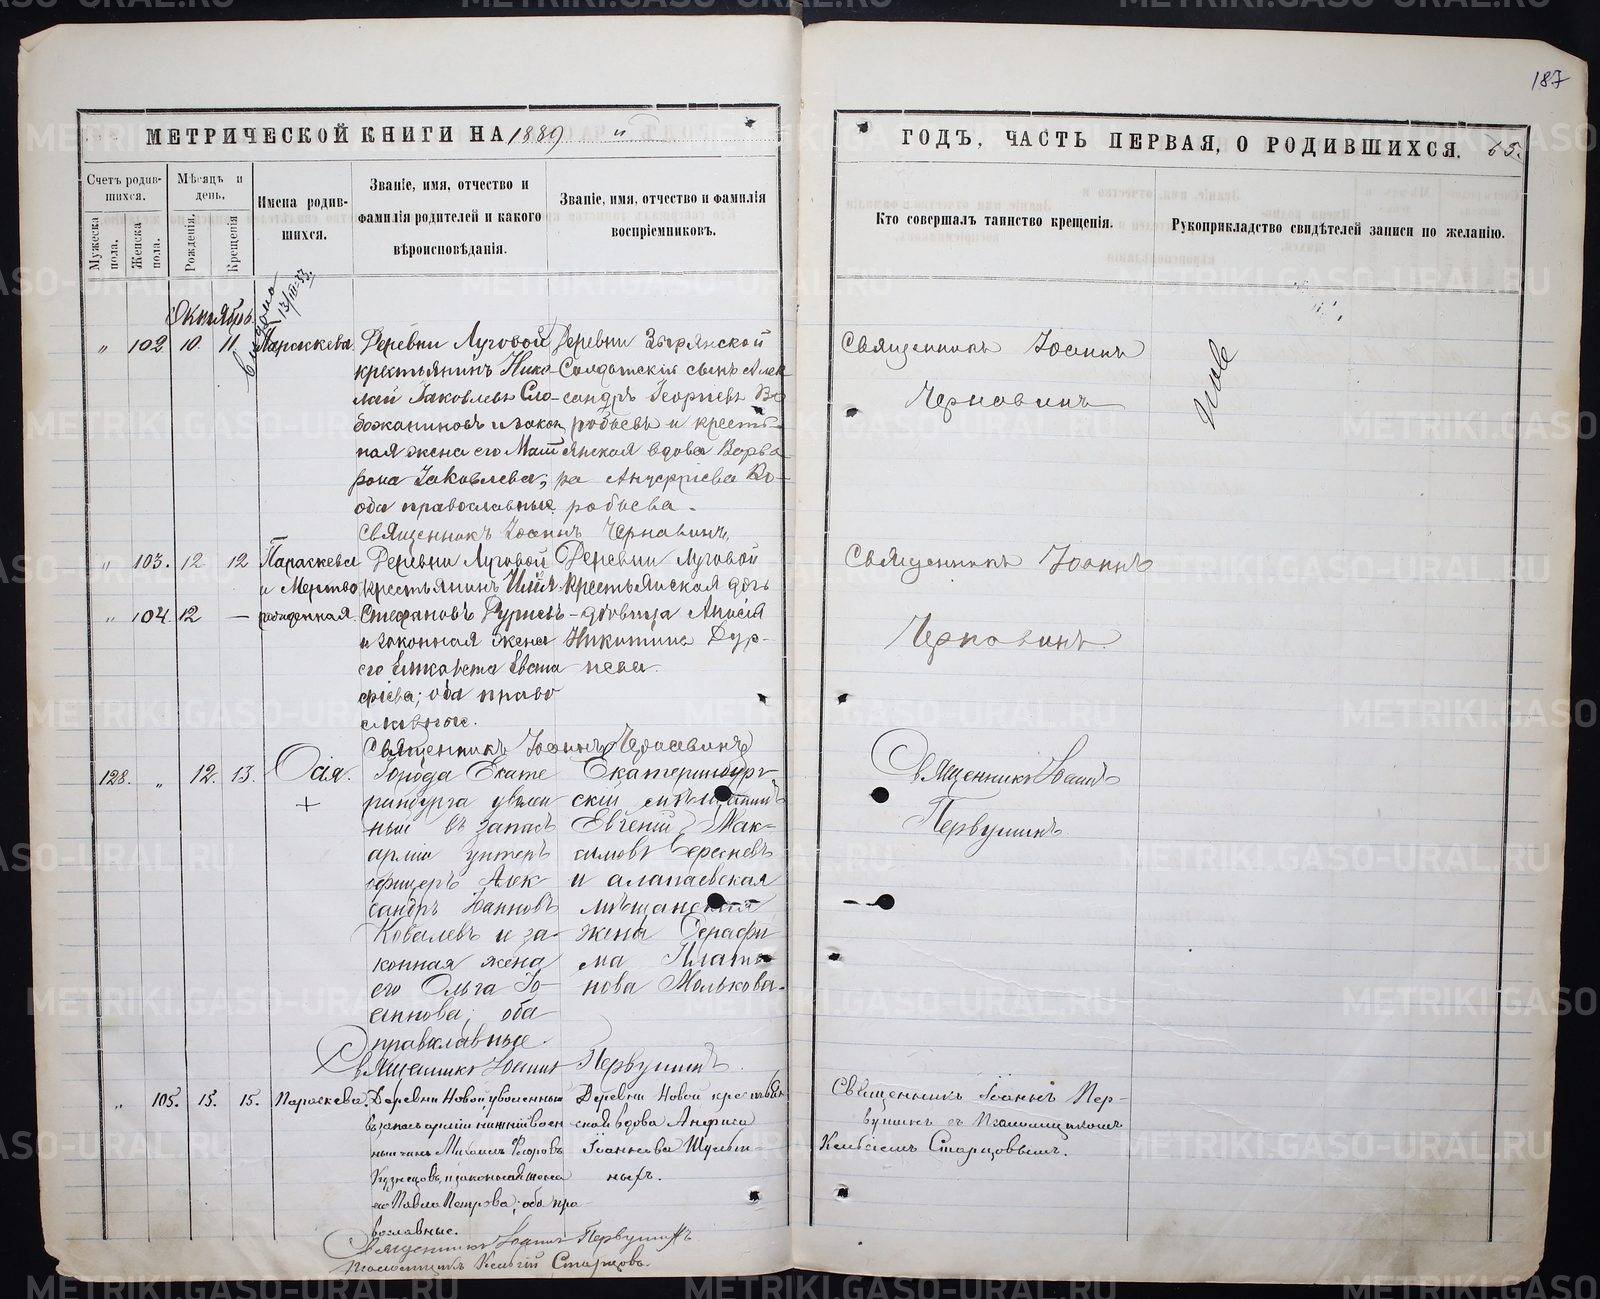 187
МЕТРИЧЕСКОЙ КНИГИ НА 1889
ГОДЪ, ЧАСТЬ ПЕРВАЯ, О РОДИВШИХСЯ. 65.
Счетъ родив-
шихся.
Мужеска
пола.
Женска
пола.
Мѣсяцъ и
день.
Рожденія.
Крещенія
Имена родив-
шихся.
Званіе, имя, отчество и
фамилія родителей и какого
вѣроисповѣданія.
Званіе, имя, отчество и фамилія
воспріемниковъ.
Кто совершалъ таинство крещенія.
Рукоприкладство свидѣтелей записи по желанію.
Октябрь
" 102 10. 11. Параскева.
Деревни Луговой
крестьянинъ Нико-
лай Яковлевъ Сло-
божаниновъ и закон
ная жена его Мат
рона Яковлева;
оба православные.
Деревни Зырянской
Солдатскій сынъ Алек
сандръ Георгіевъ Во
робьевъ и кресть-
янская вдова Варва
ра Во-
робьева.
Священникъ Іоаннъ
Чернавинъ
Священникъ Іоаннъ Чернавинъ
" 103. 12 12 Параскева
и Мертво
" 104. 12 — рожденная.
Деревни Луговой
крестьянинъ Илія
Стефановъ
и законная жена
его Елисавета Евста
фіева; оба право
славные.
Деревни Луговой
Крестьянская дочь
дѣвица Анисія
Никитина
Священникъ Іоаннъ
Чернавинъ
Священникъ Іоаннъ Чернавинъ
128. " 12. 13. Зоя.
+
Города Екате
ринбурга уволен
ный въ запасъ
арміи унтеръ
офицеръ Алек
сандръ Іоанновъ
Ковалевъ и за-
конная жена
его Ольга Іо-
сипова; оба
православные.
Екатеринбург
скій мѣщанинъ
Евгеній Мак-
симовъ
и алапаевская
мѣщанская
жена Серафи
ма Плато-
нова
Священникъ Іоаннъ
Первушинъ
Священникъ Іоаннъ Первушинъ.
" 105. 15. 15. Параскева.
Деревни Новой, уволенный
въ запасъ арміи нижній воен
ный чинъ Михаилъ Ѳедоровъ
Кузнецовъ, и законная жена
его Павла Петрова; оба пра
вославные.
Деревни Новой крестьян
ская вдова Анфиса
Іоаннова
ныхъ.
Священникъ Іоаннъ Пер-
вушинъ съ Псаломщикомъ
Старцовымъ.
Священникъ Іоаннъ Первушинъ
Псаломщикъ Старцовъ.